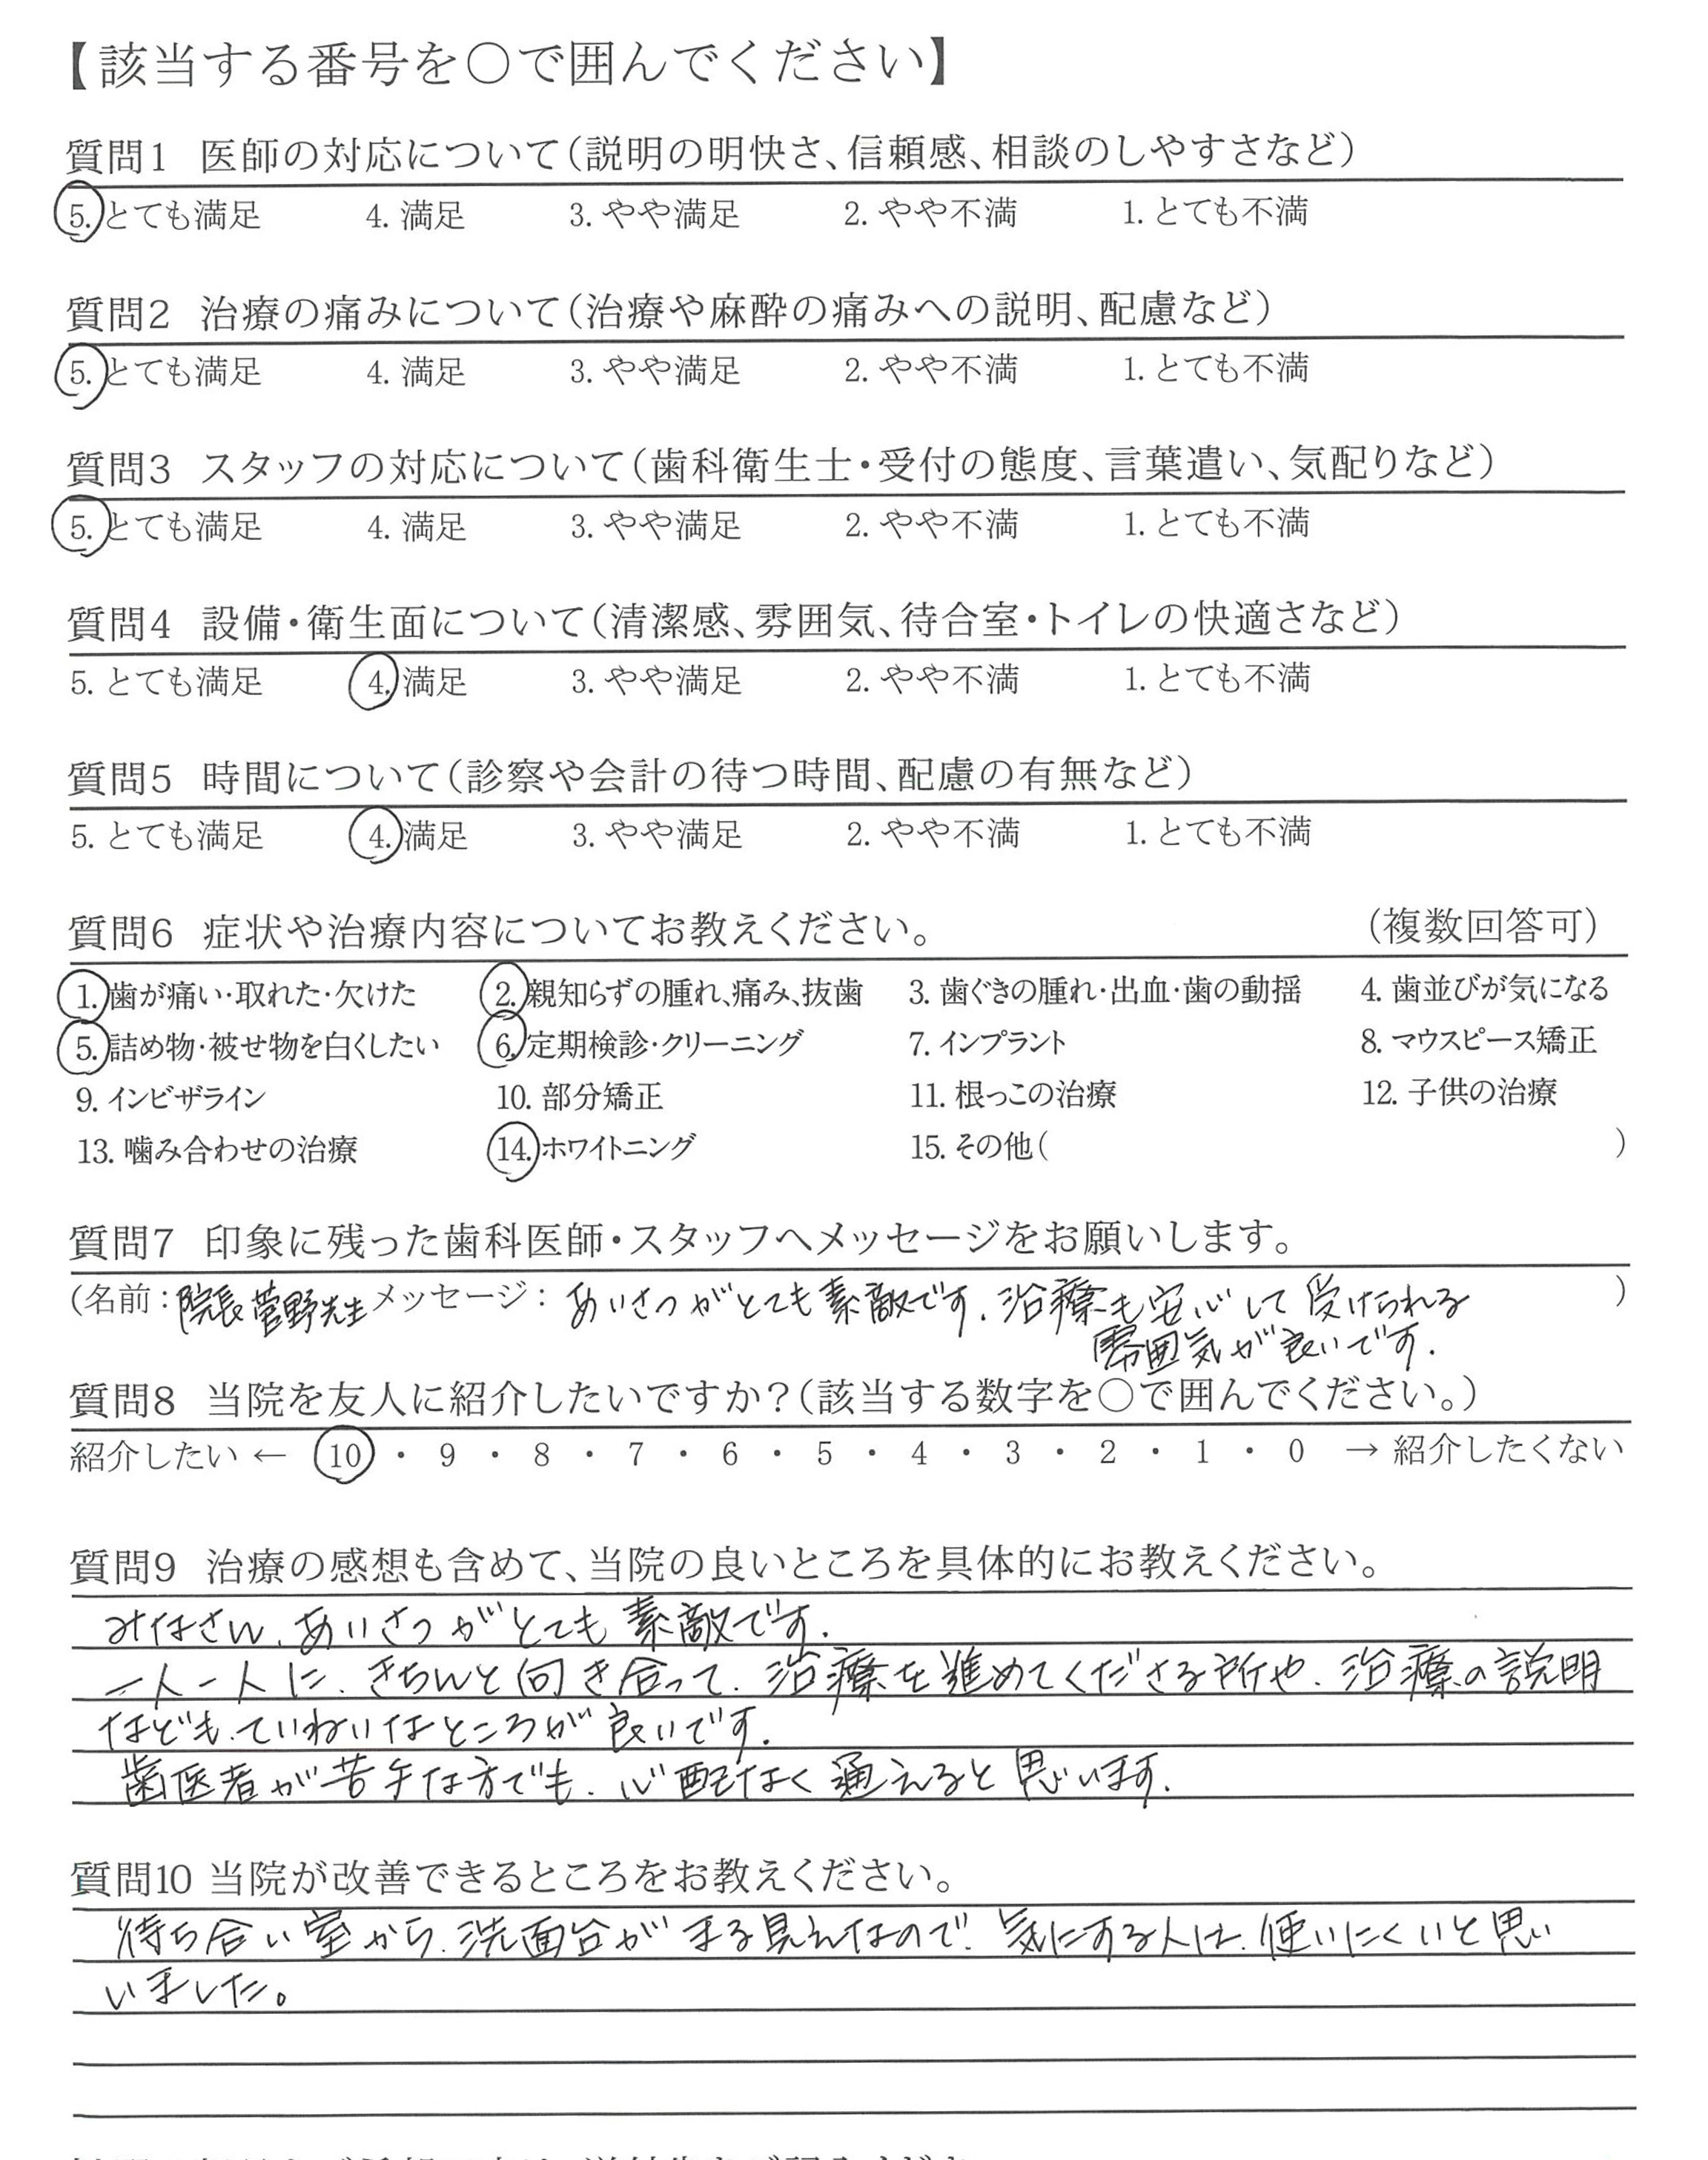 【該当する番号を○で囲んでください】
質問1 医師の対応について(説明の明快さ、信頼感、相談のしやすさなど)
5. とても満足 4. 満足 3. やや満足 2. やや不満 1. とても不満
質問2 治療の痛みについて(治療や麻酔の痛みへの説明、配慮など)
5. とても満足 4. 満足 3. やや満足 2. やや不満 1. とても不満
質問3 スタッフの対応について(歯科衛生士・受付の態度、言葉遣い、気配りなど)
5. とても満足 4. 満足 3. やや満足 2. やや不満 1. とても不満
質問4 設備・衛生面について(清潔感、雰囲気、待合室・トイレの快適さなど)
5. とても満足 4. 満足 3. やや満足 2. やや不満 1. とても不満
質問5 時間について(診察や会計の待つ時間、配慮の有無など)
5. とても満足 4. 満足 3. やや満足 2. やや不満 1. とても不満
質問6 症状や治療内容についてお教えください。 (複数回答可)
1. 歯が痛い・取れた・欠けた 2. 親知らずの腫れ、痛み、抜歯 3. 歯ぐきの腫れ・出血・歯の動揺 4. 歯並びが気になる
5. 詰め物・被せ物を白くしたい 6. 定期検診・クリーニング 7. インプラント 8. マウスピース矯正
9. インビザライン 10. 部分矯正 11. 根っこの治療 12. 子供の治療
13. 噛み合わせの治療 14. ホワイトニング 15. その他( )
質問7 印象に残った歯科医師・スタッフへメッセージをお願いします。
(名前:院長 菅野先生 メッセージ: あいさつがとても素敵です. 治療も安心して受けられる )
雰囲気が良いです.
質問8 当院を友人に紹介したいですか?(該当する数字を○で囲んでください。)
紹介したい ← 10 ・ 9 ・ 8 ・ 7 ・ 6 ・ 5 ・ 4 ・ 3 ・ 2 ・ 1 ・ 0 → 紹介したくない
質問9 治療の感想も含めて、当院の良いところを具体的にお教えください。
みなさん、あいさつがとても素敵です.
一人一人に、きちんと向き合って、治療を進めてくださる所や、治療の説明
なども、ていねいなところが良いです.
歯医者が苦手な方でも、心配なく通えると思います.
質問10 当院が改善できるところをお教えください。
待ち合い室から、洗面台がまる見えなので、気にする人は、使いにくいと思い
いました。